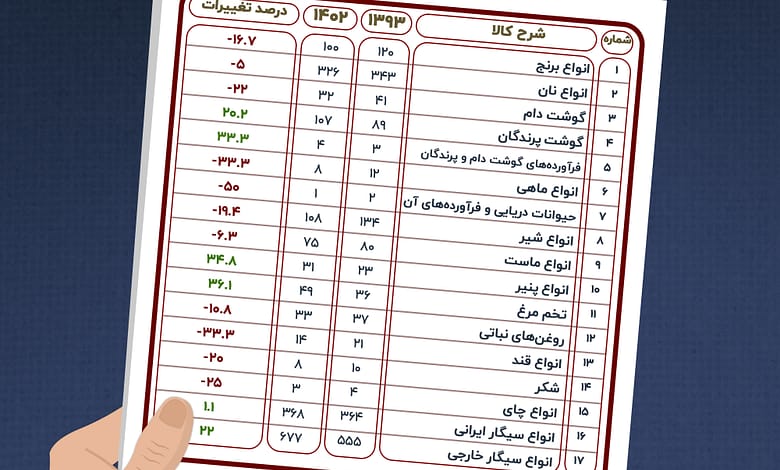 شماره شرح کالا ۱۳۹۳ ۱۴۰۲ درصد تغییرات
۱ انواع برنج ۱۲۰ ۱۰۰ -۱۶.۷
۲ انواع نان ۳۴۳ ۳۲۶ -۵
۳ گوشت دام ۴۱ ۳۲ -۲۲
۴ گوشت پرندگان ۸۹ ۱۰۷ ۲۰.۲
۵ فرآورده‌های گوشت دام و پرندگان ۳ ۴ ۳۳.۳
۶ انواع ماهی ۱۲ ۸ -۳۳.۳
۷ حیوانات دریایی و فرآورده‌های آن ۲ ۱ -۵۰
۸ انواع شیر ۱۳۴ ۱۰۸ -۱۹.۴
۹ انواع ماست ۸۰ ۷۵ -۶.۳
۱۰ انواع پنیر ۲۳ ۳۱ ۳۴.۸
۱۱ تخم مرغ ۳۶ ۴۹ ۳۶.۱
۱۲ روغن‌های نباتی ۳۷ ۳۳ -۱۰.۸
۱۳ انواع قند ۲۱ ۱۴ -۳۳.۳
۱۴ شکر ۱۰ ۸ -۲۰
۱۵ انواع چای ۴ ۳ -۲۵
۱۶ انواع سیگار ایرانی ۳۶۴ ۳۶۸ ۱.۱
۱۷ انواع سیگار خارجی ۵۵۵ ۶۷۷ ۲۲